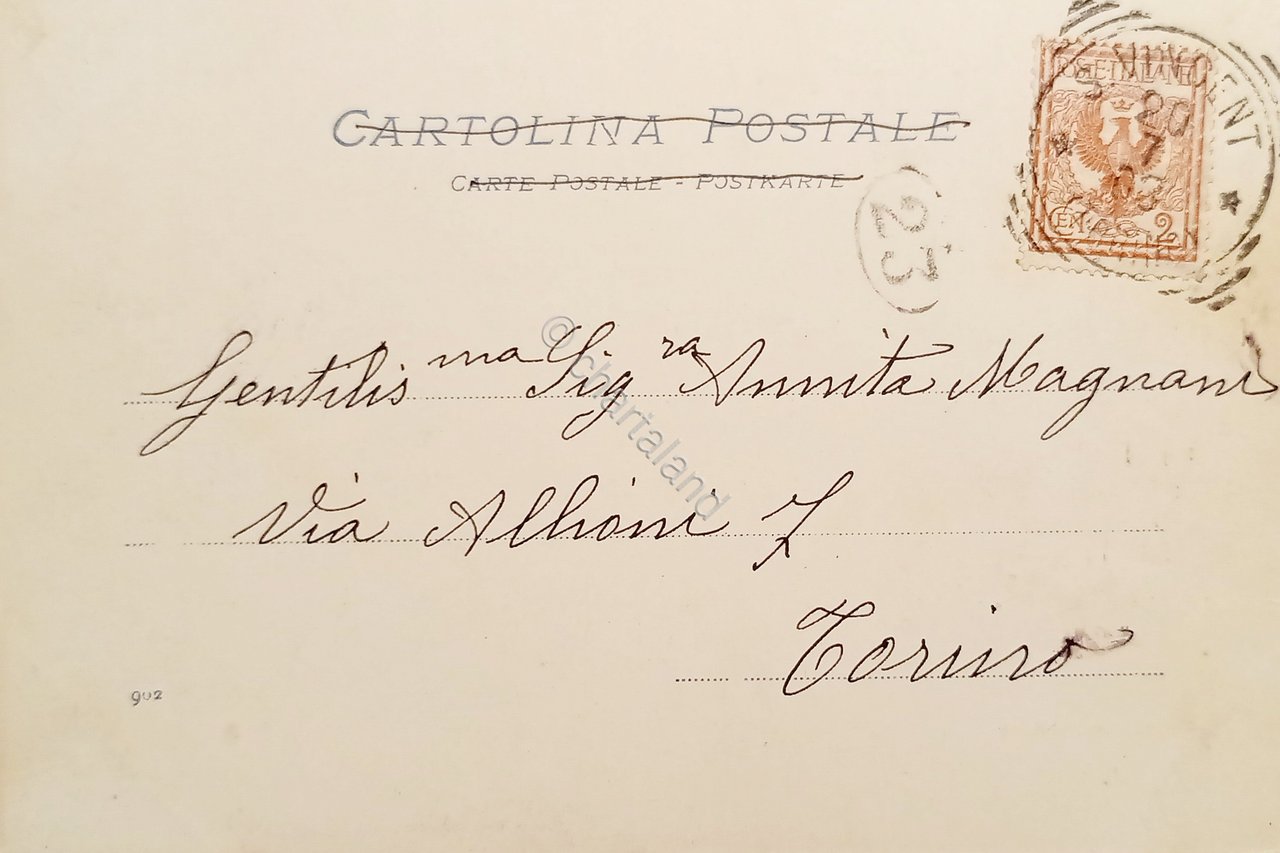 CARTOLINA POSTALE
CARTE POSTALE - POSTKARTE
POSTE ITALIANE
CENT. 2
VINCENT
20
7
23
Gentilis ma Sig ra Annita Magnani
Via Allioni 7
Torino
902
© chartaland